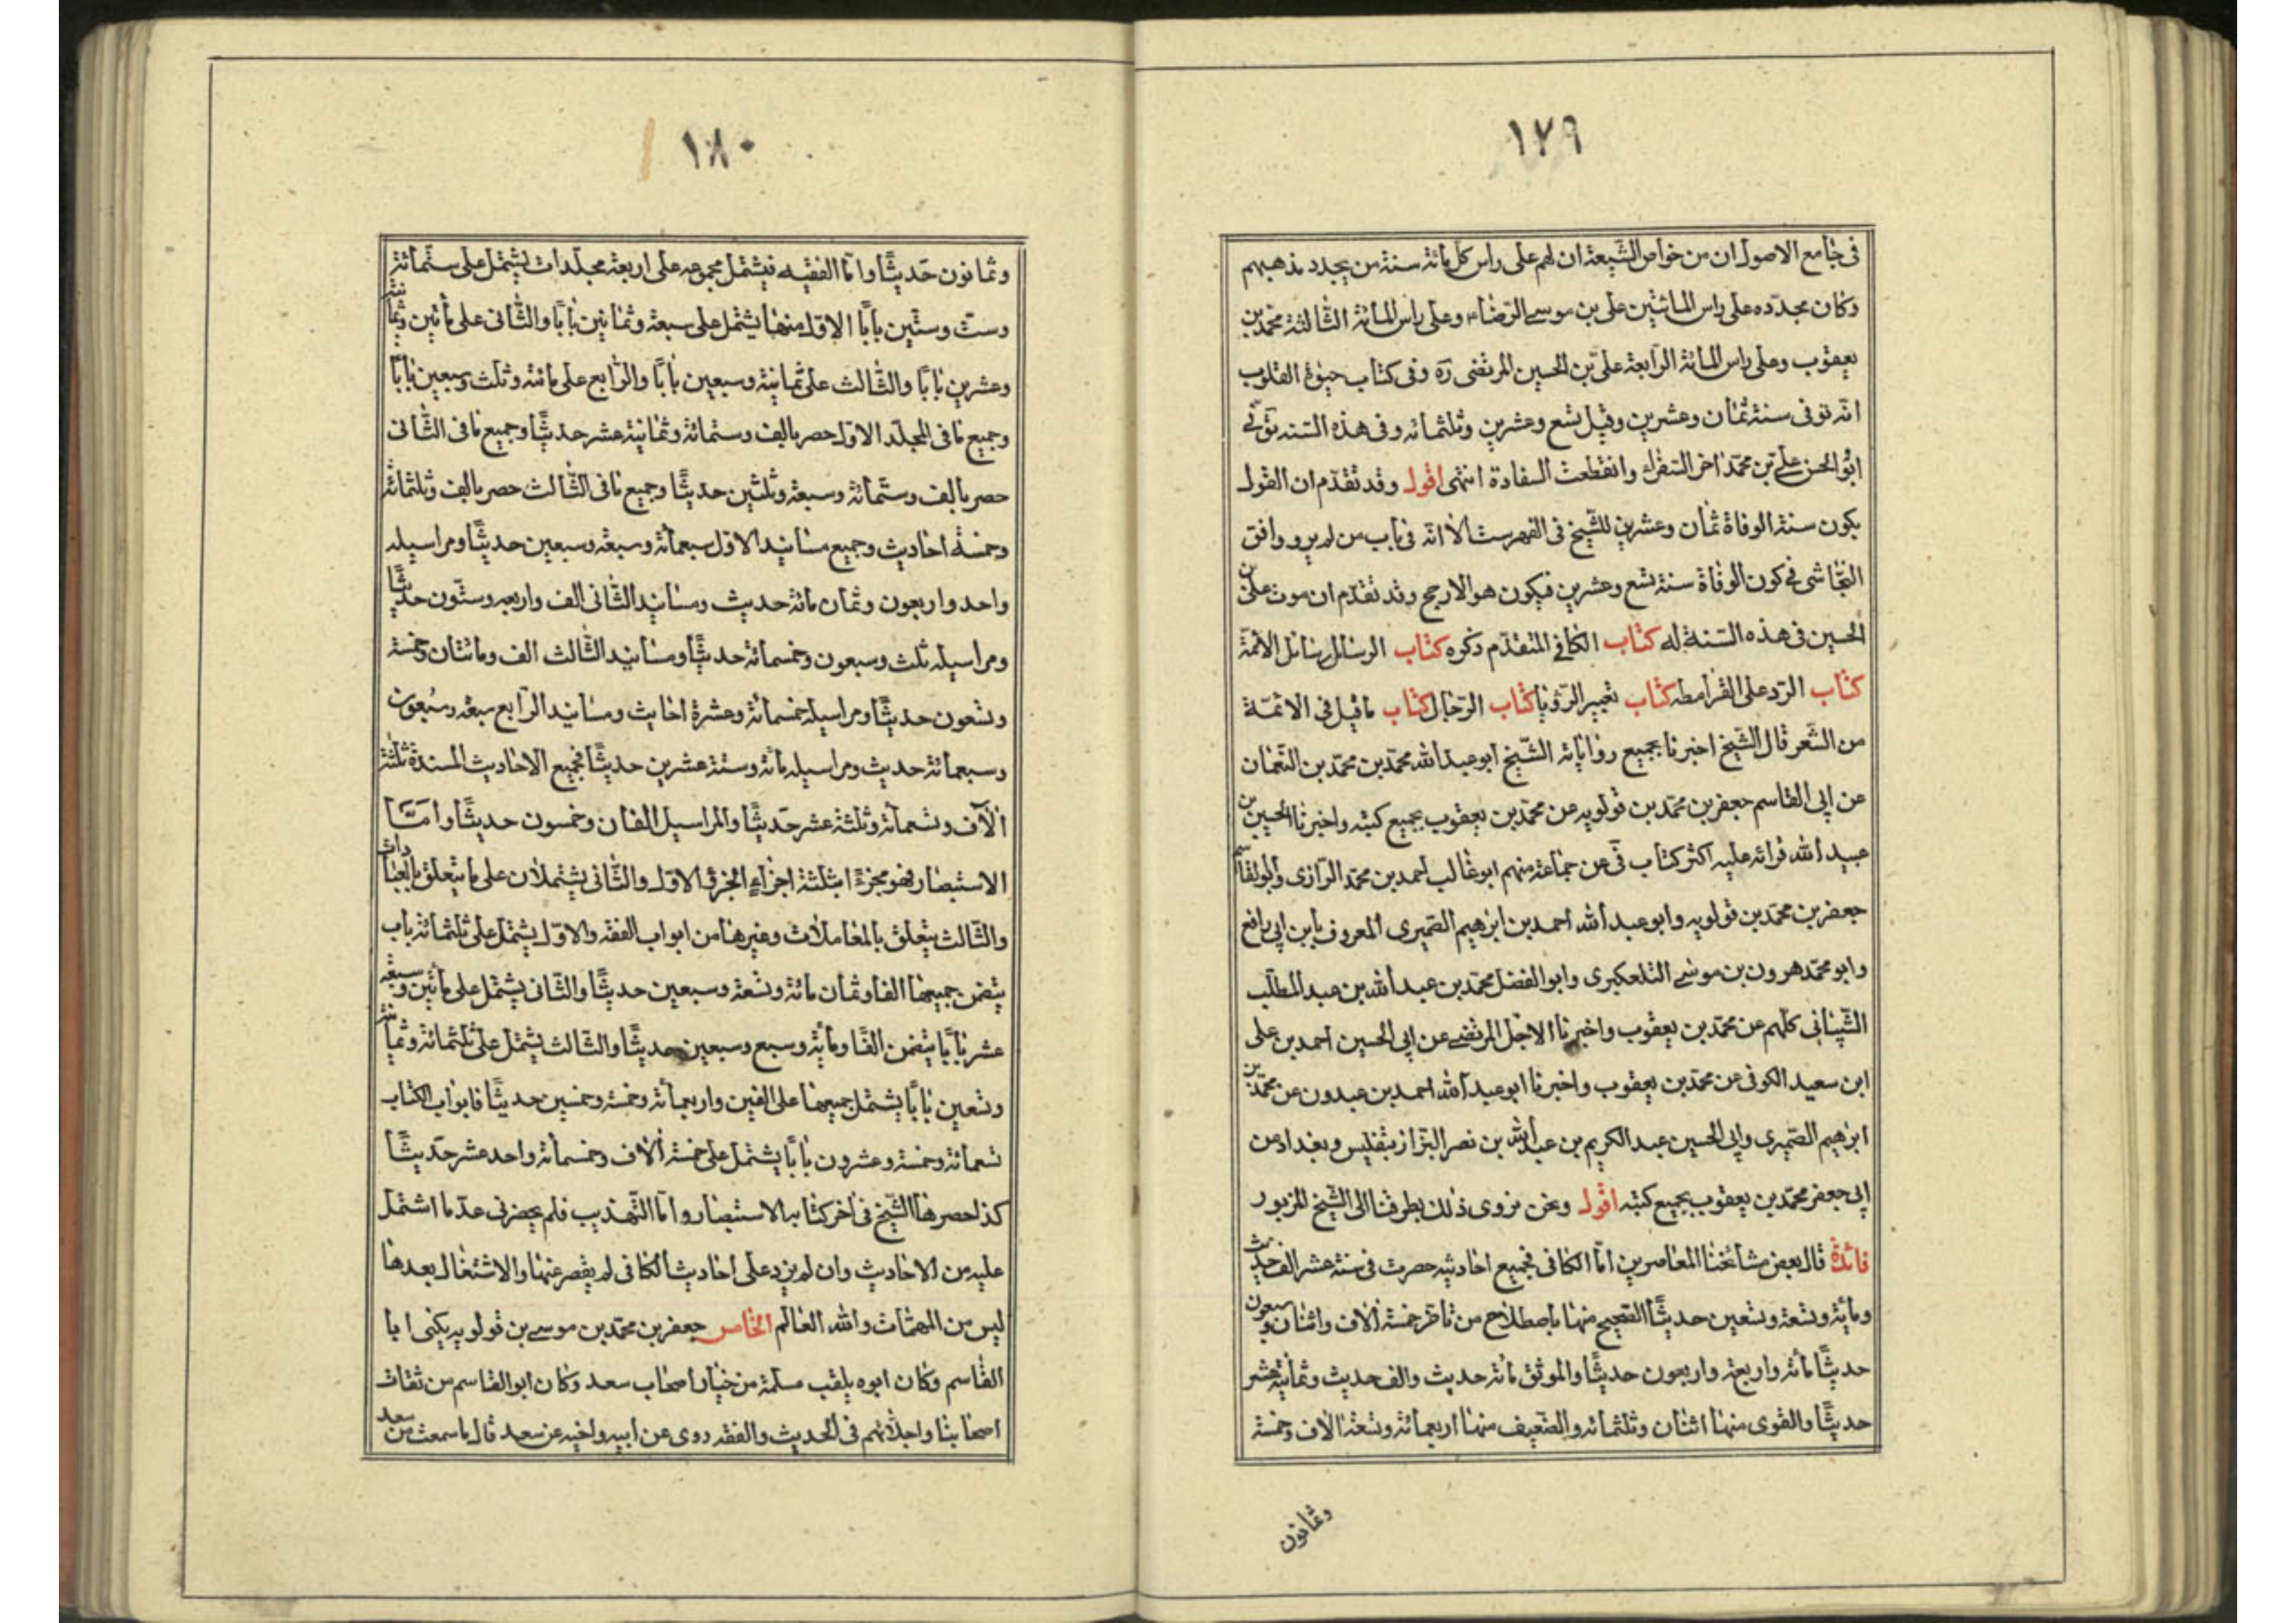 ١٧٩
فى جامع الاصول ان من خواص الشيعة ان لهم على راس كل مائة سنة من يجدد مذهبهم
وكان مجدده على راس المائتين على بن موسى الرضا ء وعلى راس المائة الثالثة محمد بن
يعقوب وعلى راس المائة الرابعة على بن الحسين المرتضى ره وفى كتاب حيوة القلوب
انه توفى سنة ثمان وعشرين وقيل تسع وعشرين وثلثمائه وفى هذه السنه توفى
ابو الحسن على بن محمد اخر السفراء وانقطعت السفادة انتهى اقول وقد تقدم ان القول
بكون سنة الوفاة ثمان وعشرين للشيخ فى الفهرست الا انه فى باب من لم يرو وافق
النجاشى فى كون الوفاة سنة تسع وعشرين فيكون هو الارجح وقد تقدم ان موت على بن
الحسين فى هذه السنة له كتاب الكافى المتقدم ذكره كتاب الرسائل رسائل الائمة
كتاب الرد على القرامطه كتاب تعبير الرؤيا كتاب الرجال كتاب ما قيل فى الائمة
من الشعر قال الشيخ اخبرنا بجميع رواياته الشيخ ابو عبد الله محمد بن محمد بن النعمان
عن ابى القاسم جعفر بن محمد بن قولويه عن محمد بن يعقوب بجميع كتبه واخبرنا الحسين بن
عبيد الله قرائه عليه اكثر كتاب فى عن جماعة منهم ابو غالب احمد بن محمد الرازى وابو القاسم
جعفر بن محمد بن قولويه وابو عبد الله احمد بن ابرهيم الصيمرى المعروف بابن ابى رافع
وابو محمد هرون بن موسى التلعكبرى وابو الفضل محمد بن عبد الله بن عبد المطلب
الشيبانى كلهم عن محمد بن يعقوب واخبرنا الاجل المرتضى عن ابى الحسين احمد بن على
ابن سعيد الكوفى عن محمد بن يعقوب واخبرنا ابو عبد الله احمد بن عبدون عن محمد بن
ابرهيم الصيمرى وابى الحسين عبد الكريم بن عبد الله بن نصر البزاز بتفليس وبغداد عن
ابى جعفر محمد بن يعقوب بجميع كتبه اقول ونحن نروى ذلك بطرقنا الى الشيخ المزبور
فائدة قال بعض مشائخنا المعاصرين اما الكافى فجميع احاديثه حصرت فى ستة عشر الف حديث
ومأية وتسعة وتسعين حديثًا الصحيح منها باصطلاح من تاخر خمسة الاف واثنان وسبعون
حديثًا مائة واربعة واربعون حديثًا والموثق مائة حديث والف حديث وثمانية عشر
حديثًا والقوى منها اثنان وثلثمائه والضعيف منها اربعمائة وتسعة الاف وخمسة
وثمانون
١٨٠
وثمانون حديثًا واما الفقيه فيشتمل مجموعه على اربعة مجلدات يشتمل على ستمائة
وست وستين بابًا الاول منها يشتمل على سبعة وثمانين بابًا والثانى على مأتين وثمانية
وعشرين بابًا والثالث على ثمانية وسبعين بابًا والرابع على مائة وثلث وسبعين بابًا
وجميع ما فى المجلد الاول حصر بالف وستمائة وثمانية عشر حديثًا وجميع ما فى الثانى
حصر بالف وستمائة وسبعة وثلثين حديثًا وجميع ما فى الثالث حصر بالف وثلثمائة
وخمسة احاديث وجميع مسانيد الاول سبعمائة وسبعة وسبعين حديثًا ومراسيله
واحد واربعون وثمان مائة حديث ومسانيد الثانى الف واربعه وستون حديثًا
ومراسيله ثلث وسبعون وخمسمائة حديثًا ومسانيد الثالث الف ومائتان وخمسة
وتسعون حديثًا ومراسيله خمسمائة وعشرة احاديث ومسانيد الرابع سبعة وسبعون
وسبعمائة حديث ومراسيله مائة وستة عشرين حديثًا فجميع الاحاديث المسندة ثلثة
الآف وتسعمائة وثلثة عشر حديثًا والمراسيل الفان وخمسون حديثًا واما
الاستبصار فهو مجزءًا بثلثة اجزاء الجزء الاول والثانى يشتملان على ما يتعلق بالعبادات
والثالث يتعلق بالمعاملات وغيرها من ابواب الفقه والاول يشتمل على ثلثمائة باب
يتضمن جميعها الفا وثمان مائة وتسعة وسبعين حديثًا والثانى يشتمل على مأتين وسبعة
عشر بابًا يتضمن الفًا ومأية وسبع وسبعين حديثًا والثالث يشتمل على ثلثمائة وثمانية
وتسعين بابًا يشتمل جميعها على الفين واربعمائة وخمسة وخمسين حديثًا فابواب الكتاب
تسعمائة وخمسة وعشرون بابًا يشتمل على خمسة ألاف وخمسمائة واحد عشر حديثًا
كذا حصرها الشيخ فى اخر كتابه الاستبصار واما التهذيب فلم يحضرنى عد ما اشتمل
عليه من الاحاديث وان لم يزد على احاديث الكافى لم يقصر عنها والاشتغال بعدها
ليس من المهمات والله العالم الخامس جعفر بن محمد بن موسى بن قولويه يكنى ابا
القاسم وكان ابوه يلقب مسلمة من خيار اصحاب سعد وكان ابو القاسم من ثقات
اصحابنا واجلائهم فى الحديث والفقه روى عن ابيه واخيه عن سعد قال ما سمعت من سعد